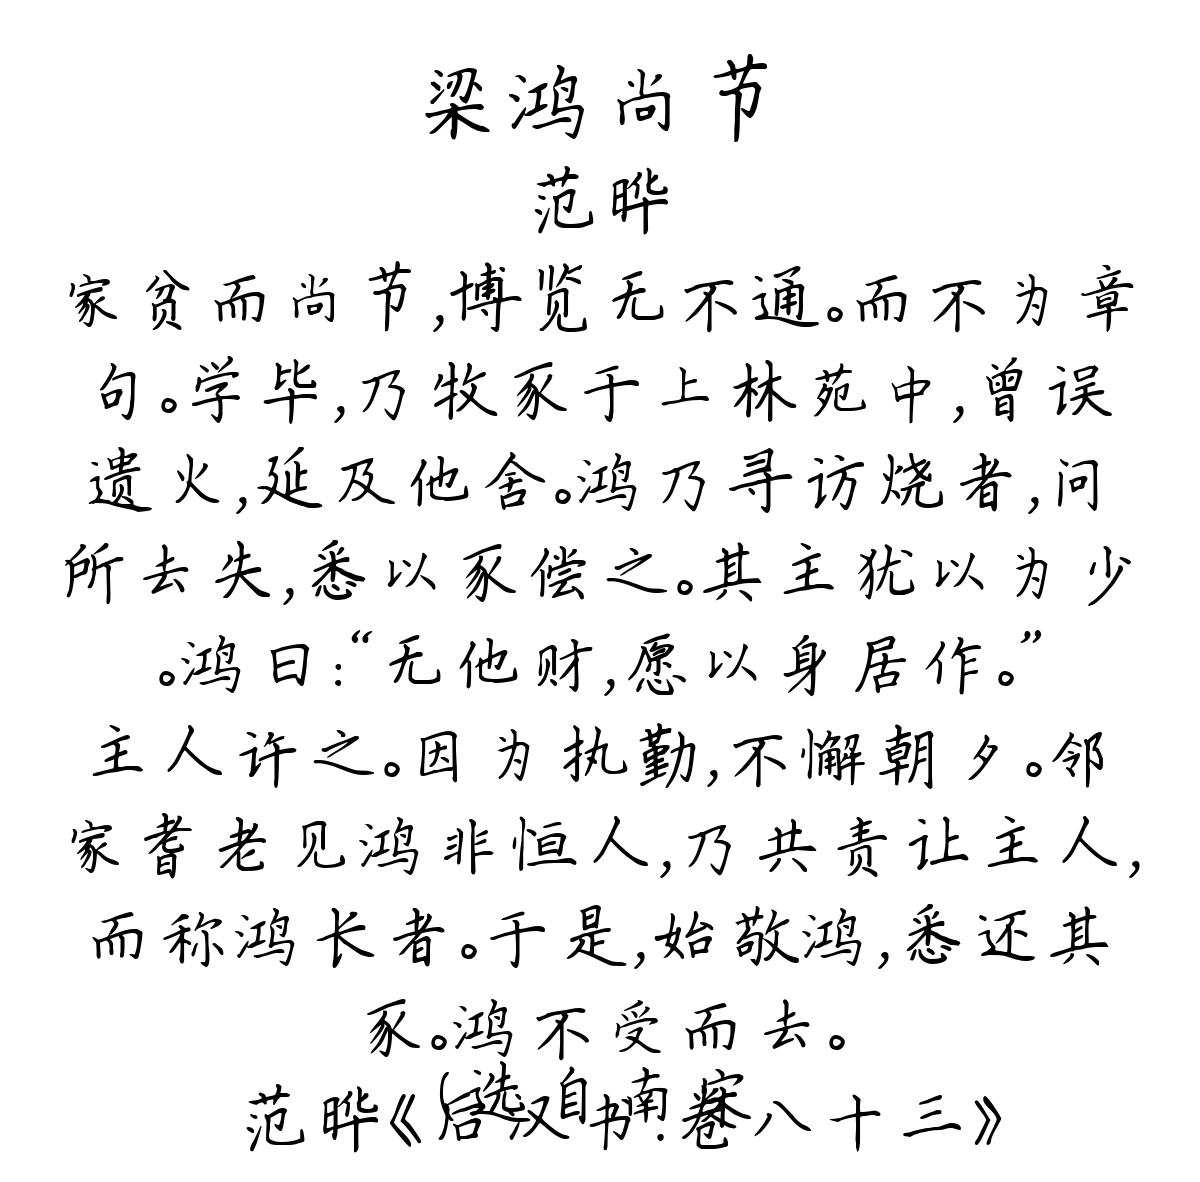 梁鸿尚节
范晔
家贫而尚节,博览无不通。而不为章
句。学毕,乃牧豕于上林苑中,曾误
遗火,延及他舍。鸿乃寻访烧者,问
所去失,悉以豕偿之。其主犹以为少
。鸿曰:“无他财,愿以身居作。”
主人许之。因为执勤,不懈朝夕。邻
家耆老见鸿非恒人,乃共责让主人,
而称鸿长者。于是,始敬鸿,悉还其
豕。鸿不受而去。
(选自南宋
范晔《后汉书.卷八十三》